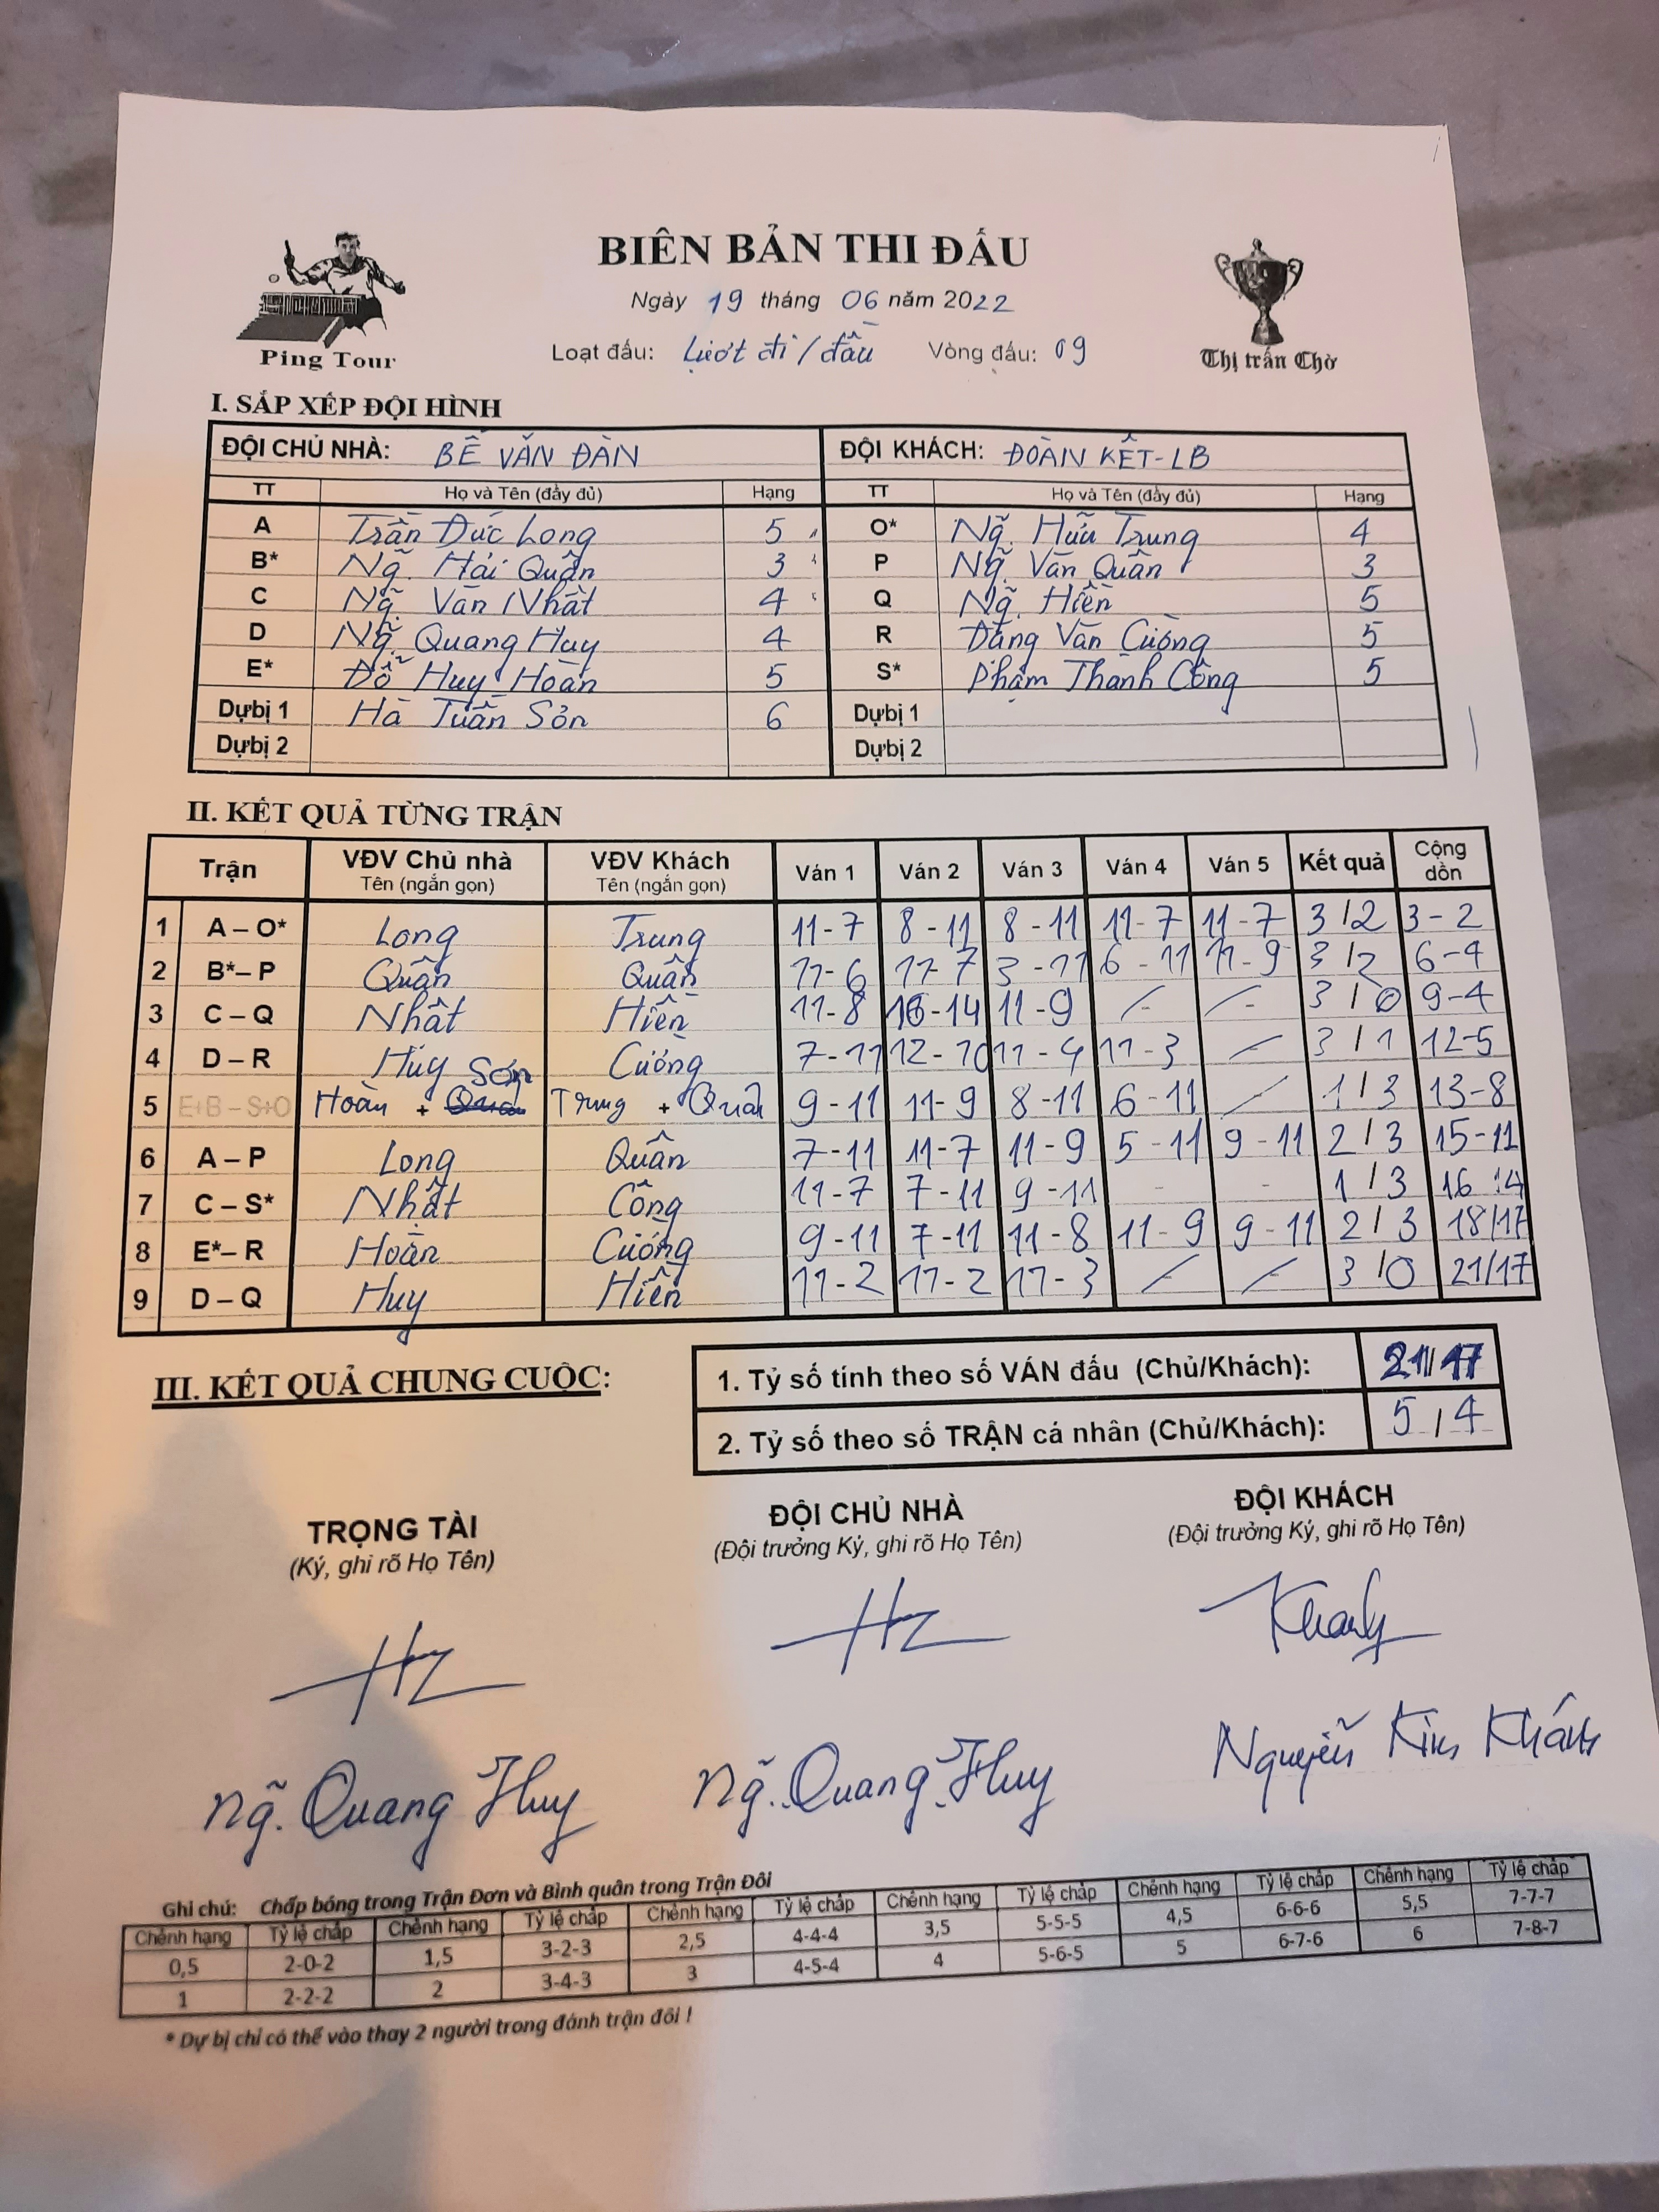 BIÊN BẢN THI ĐẤU
Ngày 19 tháng 06 năm 2022
Loạt đấu: Lượt đi / đầu Vòng đấu: 09
Ping Tour
Thị trấn Chờ
I. SẮP XẾP ĐỘI HÌNH
ĐỘI CHỦ NHÀ: BẾ VĂN ĐÀN ĐỘI KHÁCH: ĐOÀN KẾT-LB
TT Họ và Tên (đầy đủ) Hạng TT Họ và Tên (đầy đủ) Hạng
A Trần Đức Long 5 O* Ng~. Hữu Trung 4
B* Ng~. Hải Quân 3 P Ng~. Văn Quân 3
C Ng~. Văn Nhất 4 Q Ng~. Hiền 5
D Ng~. Quang Huy 4 R Đặng Văn Cường 5
E* Đỗ Huy Hoàn 5 S* Phạm Thanh Công 5
Dự bị 1 Hà Tuấn Sơn 6 Dự bị 1
Dự bị 2 Dự bị 2
II. KẾT QUẢ TỪNG TRẬN
Trận VĐV Chủ nhà VĐV Khách Ván 1 Ván 2 Ván 3 Ván 4 Ván 5 Kết quả Cộng dồn
Tên (ngắn gọn) Tên (ngắn gọn)
1 A – O* Long Trung 11-7 8-11 8-11 11-7 11-7 3/2 3-2
2 B* – P Quân Quân 11-6 11-7 3-11 6-11 11-9 3/2 6-4
3 C – Q Nhất Hiền 11-8 16-14 11-9 - - 3/0 9-4
4 D – R Huy Cường 7-11 12-10 11-4 11-3 - 3/1 12-5
5 E+B – S+O Hoàn + Quân Sơn Trung + Quân 9-11 11-9 8-11 6-11 - 1/3 13-8
6 A – P Long Quân 7-11 11-7 11-9 5-11 9-11 2/3 15-11
7 C – S* Nhất Công 11-7 7-11 9-11 - - 1/3 16 14
8 E* – R Hoàn Cường 9-11 7-11 11-8 11-9 9-11 2/3 18/17
9 D – Q Huy Hiền 11-2 11-2 11-3 - - 3/0 21/17
III. KẾT QUẢ CHUNG CUỘC:
1. Tỷ số tính theo số VÁN đấu (Chủ/Khách): 21/17
2. Tỷ số theo số TRẬN cá nhân (Chủ/Khách): 5/4
TRỌNG TÀI ĐỘI CHỦ NHÀ ĐỘI KHÁCH
(Ký, ghi rõ Họ Tên) (Đội trưởng Ký, ghi rõ Họ Tên) (Đội trưởng Ký, ghi rõ Họ Tên)
Khanh
Ng~. Quang Huy Ng~. Quang Huy Nguyễn Kim Khánh
Ghi chú: Chấp bóng trong Trận Đơn và Bình quân trong Trận Đôi
Chênh hạng Tỷ lệ chấp Chênh hạng Tỷ lệ chấp Chênh hạng Tỷ lệ chấp Chênh hạng Tỷ lệ chấp Chênh hạng Tỷ lệ chấp Chênh hạng Tỷ lệ chấp
0,5 2-0-2 1,5 3-2-3 2,5 4-4-4 3,5 5-5-5 4,5 6-6-6 5,5 7-7-7
1 2-2-2 2 3-4-3 3 4-5-4 4 5-6-5 5 6-7-6 6 7-8-7
* Dự bị chỉ có thể vào thay 2 người trong đánh trận đôi !